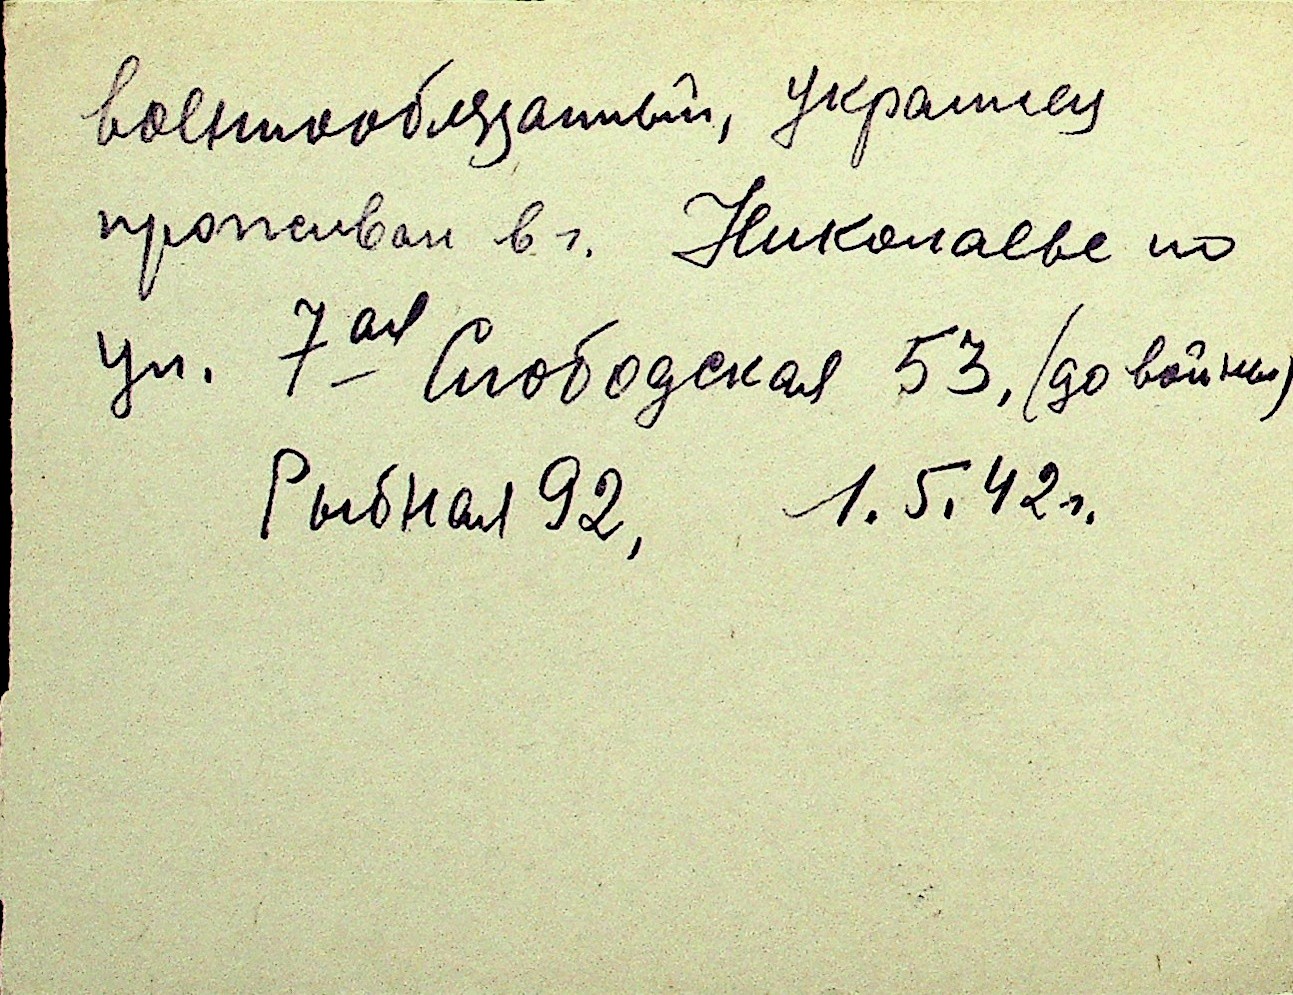 военнообязанный, украинец
проживал в г. Николаеве по
ул. 7ая Слободская 53, (до войны)
Рыбная 92, 1.5.42 г.